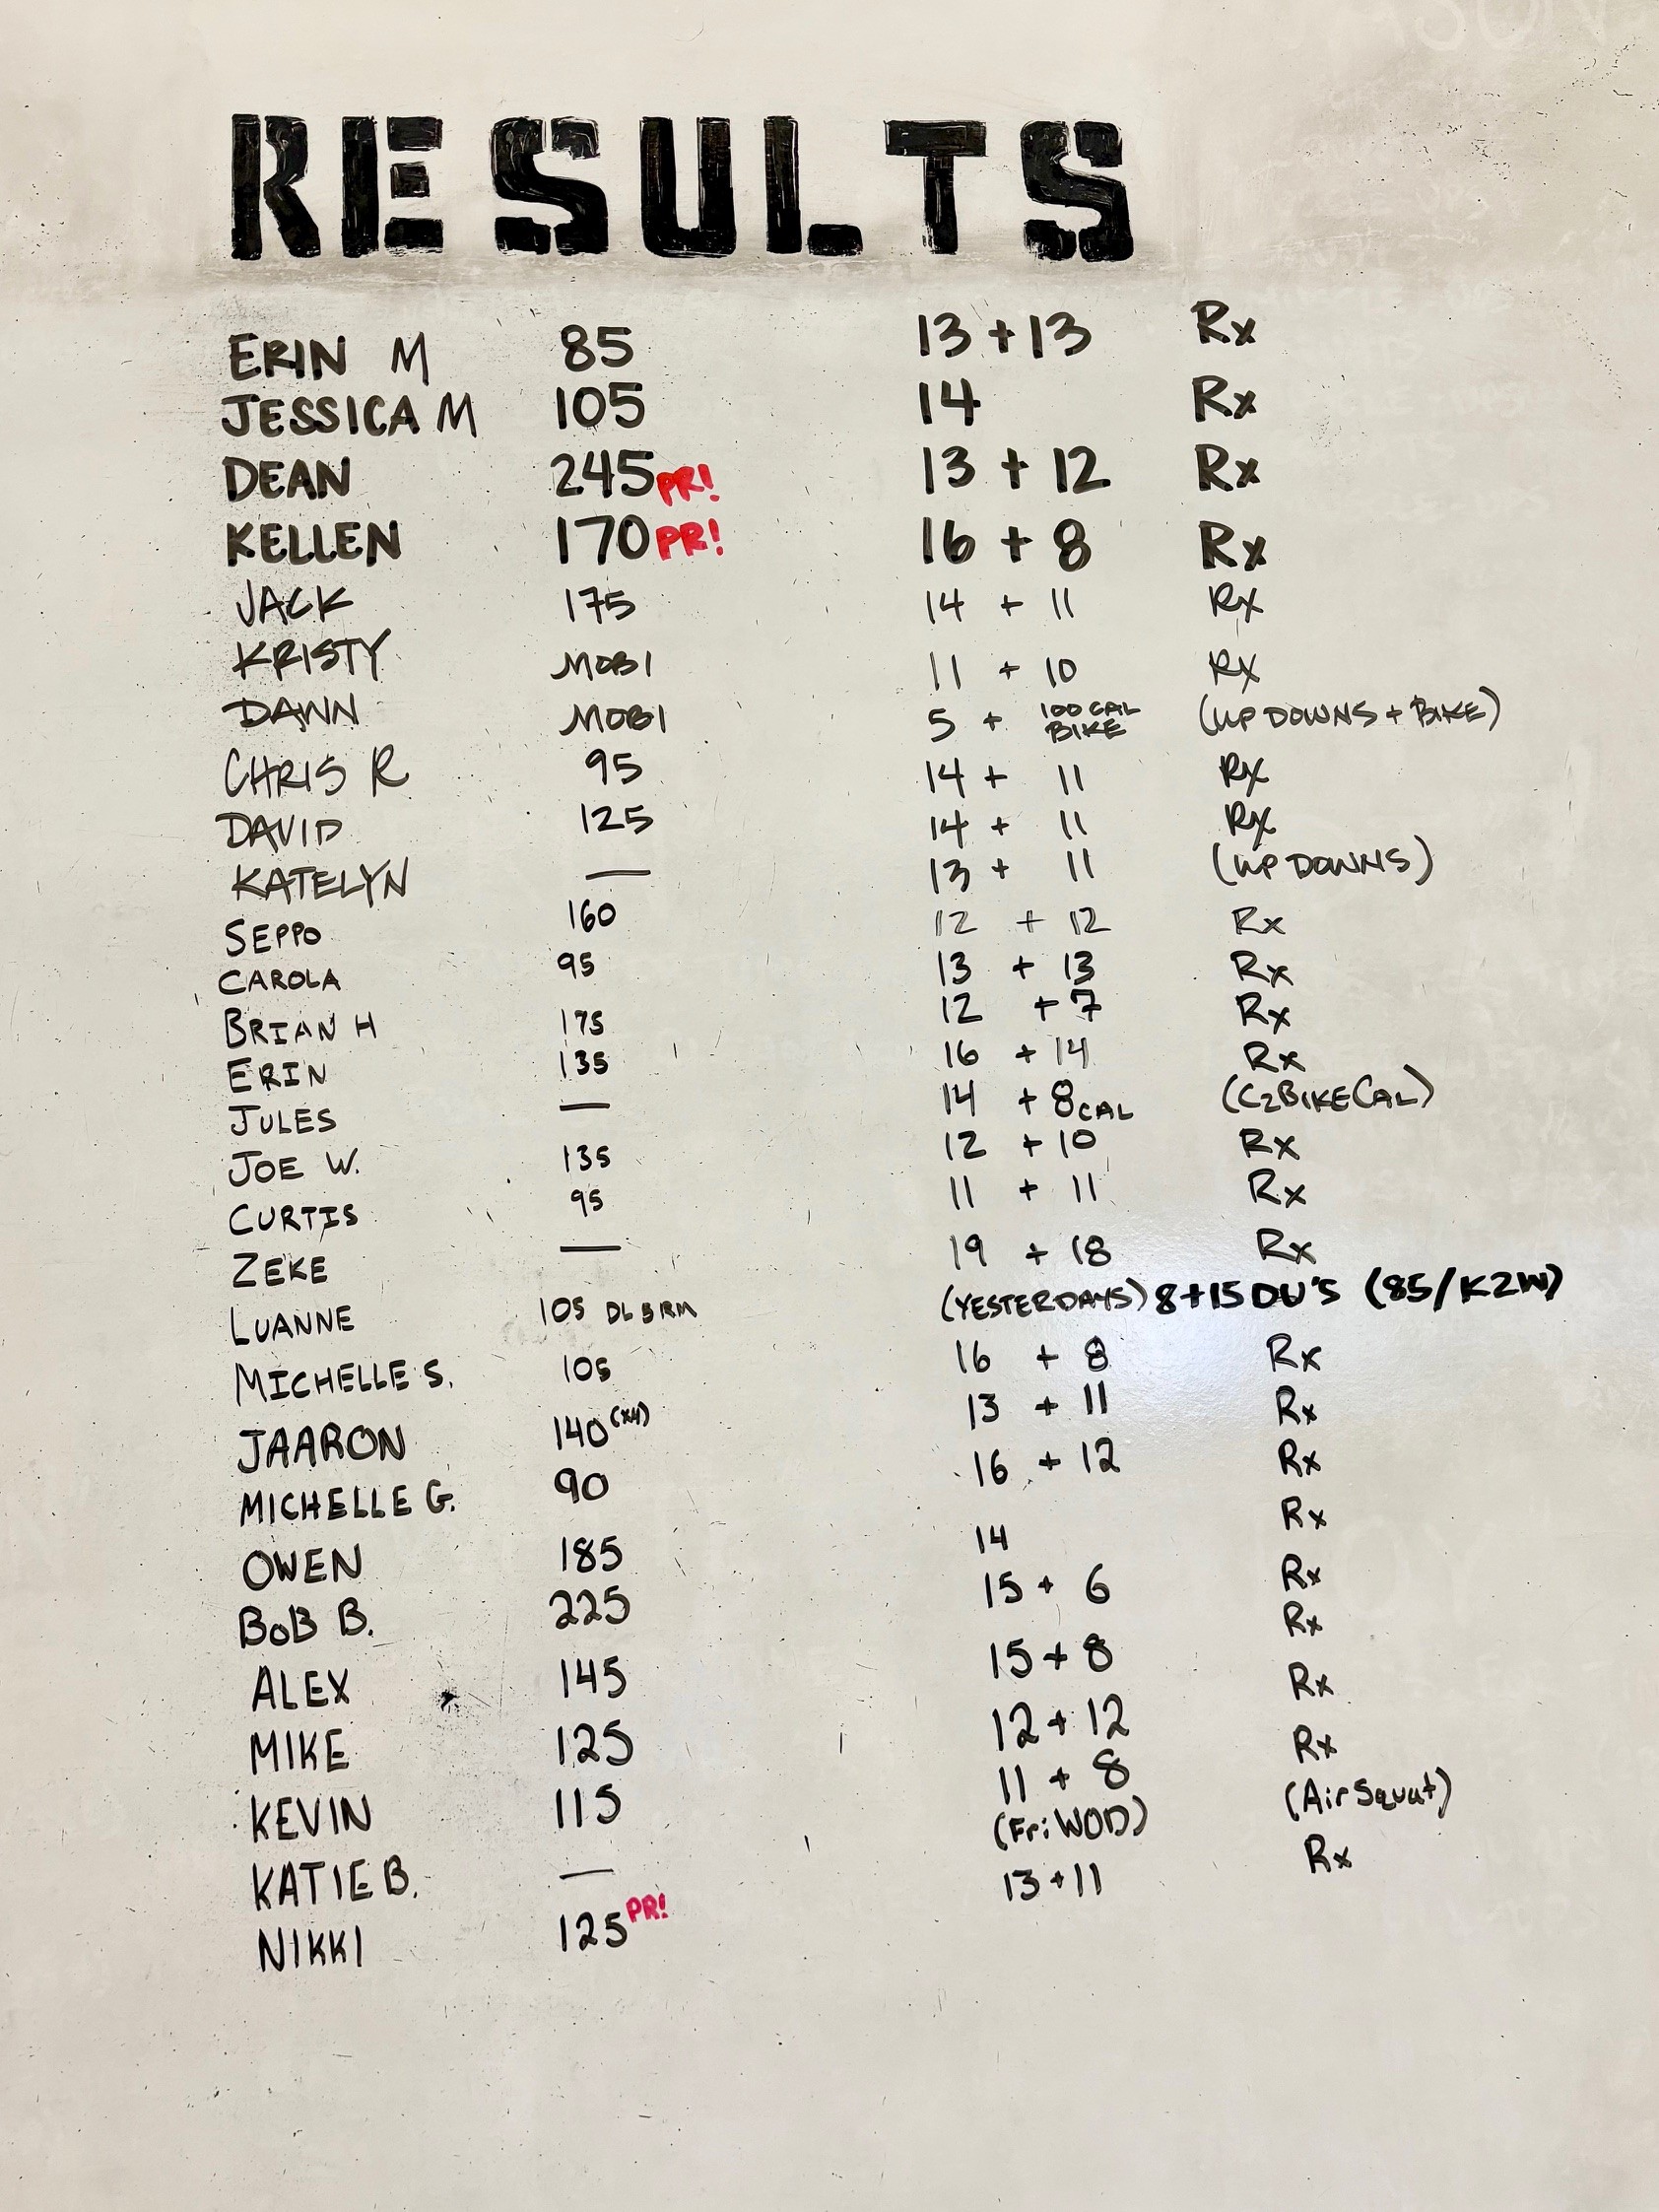 RESULTS
ERIN M 85 13 + 13 Rx
JESSICA M 105 14 Rx
DEAN 245 PR! 13 + 12 Rx
KELLEN 170 PR! 16 + 8 Rx
JACK 175 14 + 11 RX
KRISTY MOBI 11 + 10 RX
DAWN MOBI 5 + 100 CAL BIKE (UP DOWNS + BIKE)
CHRIS R 95 14 + 11 RX
DAVID 125 14 + 11 RX
KATELYN — 13 + 11 (UP DOWNS)
SEPPO 160 12 + 12 Rx
CAROLA 95 13 + 13 Rx
BRIAN H 175 12 + 7 Rx
ERIN 135 16 + 14 Rx
JULES — 14 + 8 CAL (C2 BIKE CAL)
JOE W. 135 12 + 10 Rx
CURTIS 95 11 + 11 Rx
ZEKE — 19 + 18 Rx
LUANNE 105 DL 5RM (YESTERDAYS) 8+15 DU'S (85/K2W)
MICHELLE S. 105 16 + 8 Rx
JAARON 140 (x4) 13 + 11 Rx
MICHELLE G. 90 16 + 12 Rx
OWEN 185 14 Rx
BOB B. 225 15 + 6 Rx
ALEX 145 15 + 8 Rx
MIKE 125 12 + 12 Rx
KEVIN 115 11 + 8 Rx
KATIE B. — (Fri WOD) (Air Squat)
NIKKI 125 PR! 13 + 11 Rx